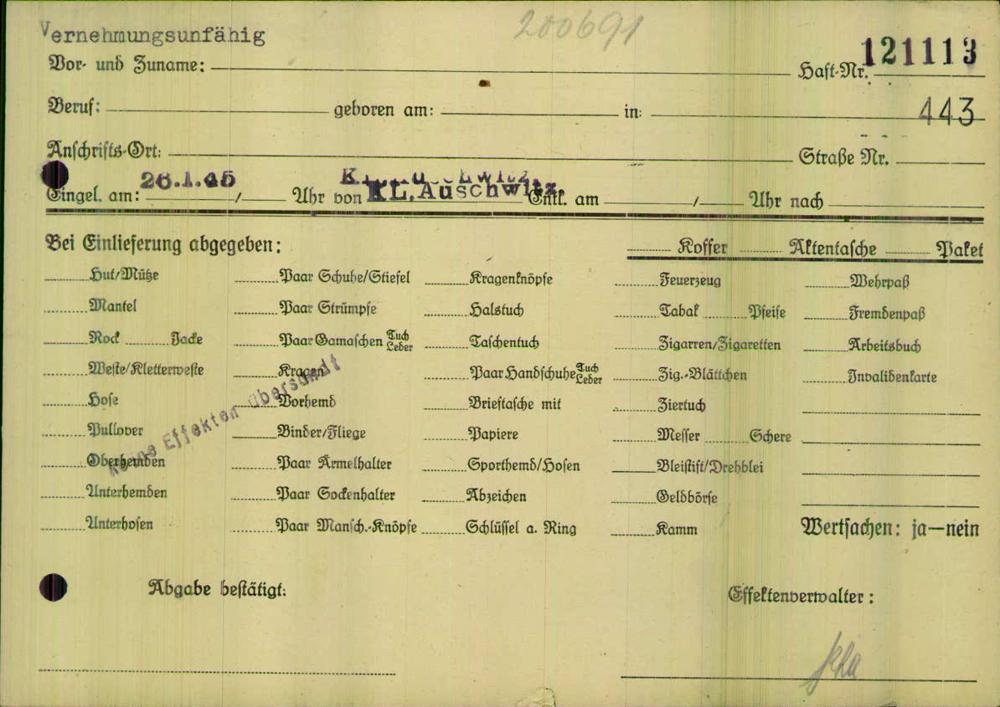 Vernehmungsunfähig 200691
Vor- und Zuname: Haft-Nr. 121113
Beruf: geboren am: in: 443
Anschrifts-Ort: Straße Nr.
Eingel. am: 26.1.45 / Uhr von KL. Auschwitz. Entl. am / Uhr nach
Bei Einlieferung abgegeben: Koffer Aktentasche Paket
Hut/Mütze Paar Schuhe/Stiefel Kragenknöpfe Feuerzeug Wehrpaß
Mantel Paar Strümpfe Halstuch Tabak Pfeife Fremdenpaß
Rock Jacke Paar Gamaschen Tuch Leder Taschentuch Zigarren/Zigaretten Arbeitsbuch
Weste/Kletterweste Kragen Paar Handschuhe Tuch Leder Zig.-Blättchen Invalidenkarte
Hose Vorhemd Brieftasche mit Ziertuch
Pullover Binder/Fliege Papiere Messer Schere
Oberhemden Paar Ärmelhalter Sporthemd/Hosen Bleistift/Drehblei
Unterhemden Paar Sockenhalter Abzeichen Geldbörse
Unterhosen Paar Mansch.-Knöpfe Schlüssel a. Ring Kamm Wertsachen: ja—nein
Keine Effekten übersandt
Abgabe bestätigt: Effektenverwalter: